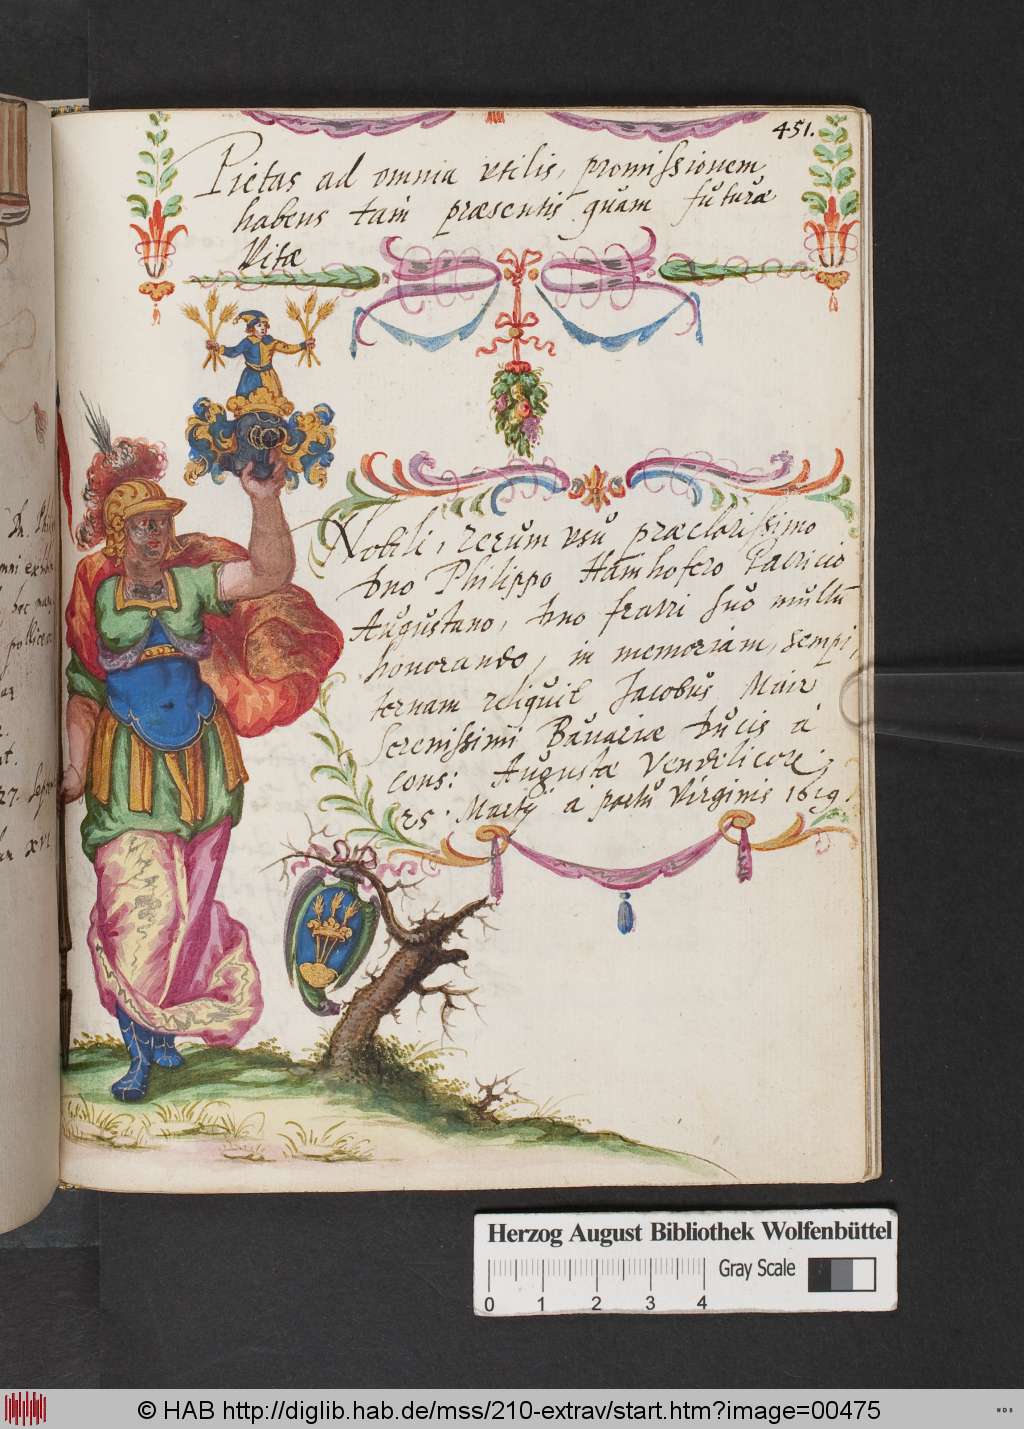 451.
Pietas ad omnia utilis, promissionem
habens tam præsentis quam futuræ
Vitæ
Nobili, rerum usu præclarissimo
Dno Philippo Hainhofero Patricio
Augustano, Dno fratri suo multum
honorando, in memoriam sempi
ternam reliquit Jacobus Mair
Serenissimi Bavariæ Ducis à
cons: Augustæ Vendelicor:
25. Martÿ à partu Virginis 1619
Herzog August Bibliothek Wolfenbüttel
Gray Scale
0 1 2 3 4
© HAB http://diglib.hab.de/mss/210-extrav/start.htm?image=00475